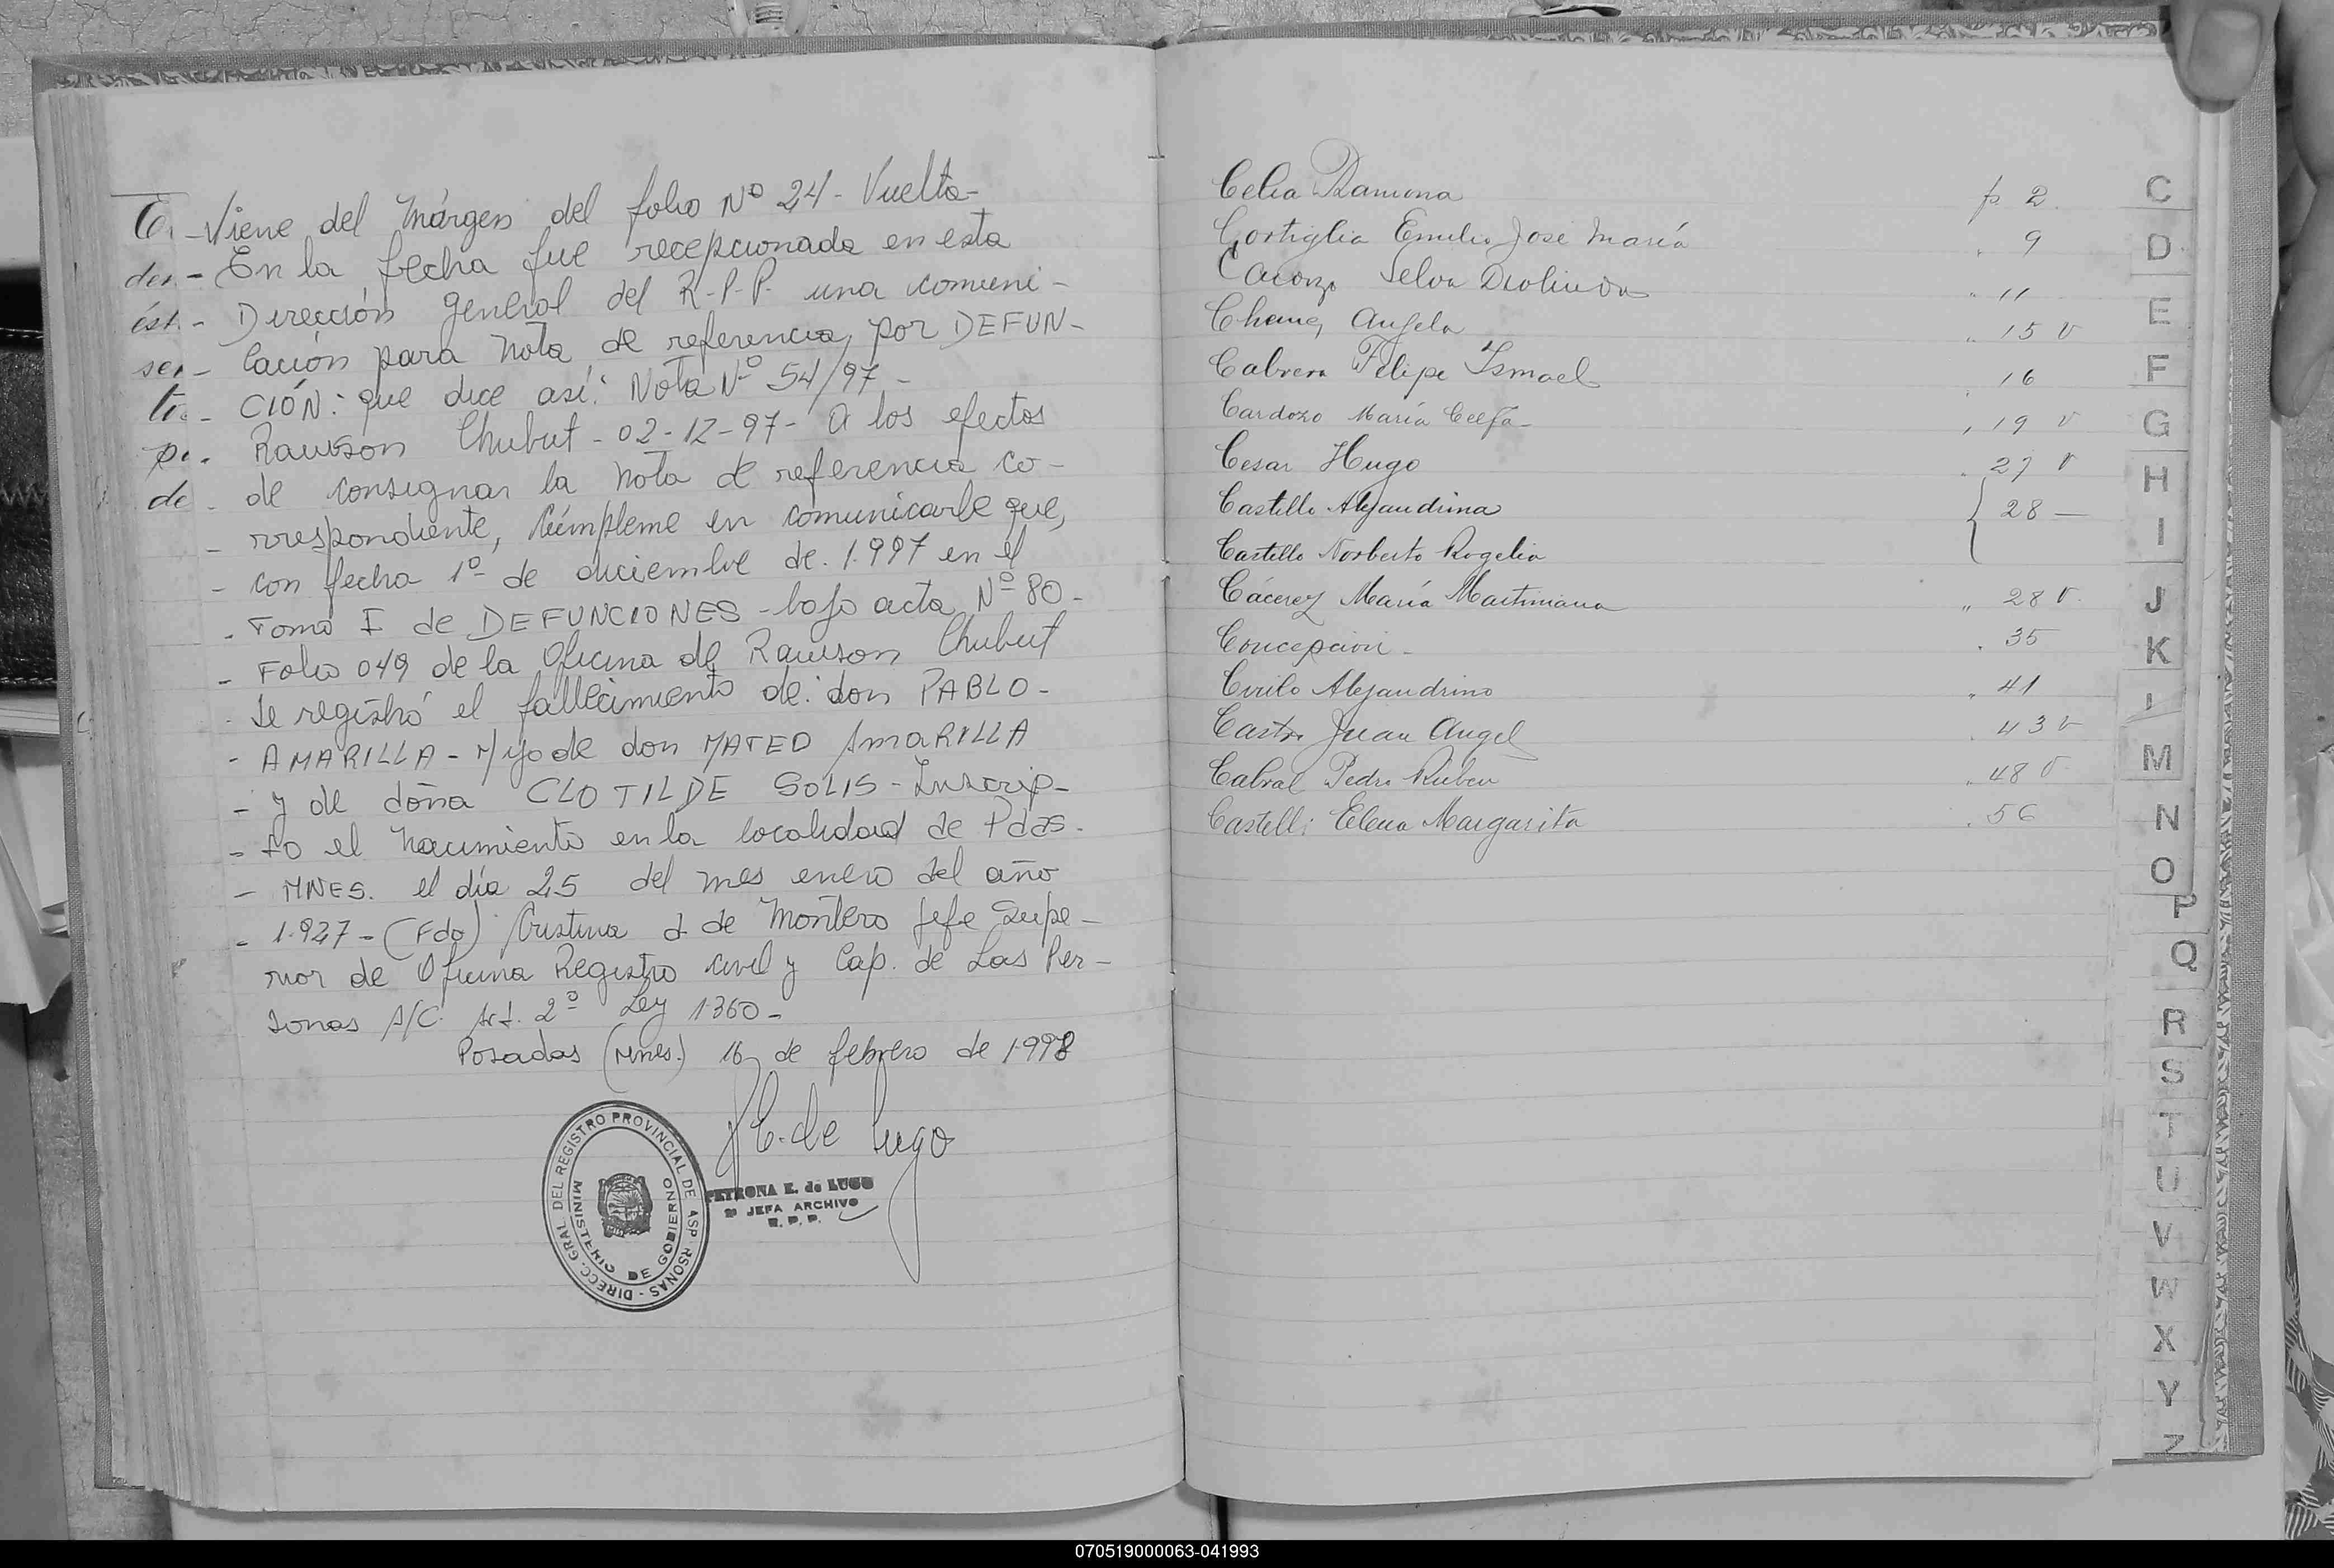 Viene del Márgen del folio Nº 24 - Vuelta -
En la fecha fue recepcionada en esta
Dirección General del R.P.P. una comuni -
cación para Nota de referencia, por DEFUN -
CIÓN: que dice así: Nota Nº 54/97 -
Rawson Chubut - 02-12-97 - A los efectos
de consignar la Nota de referencia co -
rrespondiente, cúmpleme en comunicarle que,
con fecha 1º de diciembre de 1.997 en el
Tomo I de DEFUNCIONES - bajo acta Nº 80 -
Folio 049 de la Oficina de Rawson Chubut
Se registró el fallecimiento de: don PABLO -
AMARILLA - Hijo de don MATEO AMARILLA
y de doña CLOTILDE SOLIS - Inscrip -
to el Nacimiento en la localidad de Pdas.
MNES. el día 25 del mes enero del año
1.927 - (Fdo) Cristina d de Montero Jefe Supe -
rior de Oficina Registro Civil y Cap. de Las Per -
sonas A/C. Art. 2º Ley 1360 -
Posadas (Mnes.) 16 de febrero de 1998
E. de Lugo
DIRECC. GRAL. DEL REGISTRO PROVINCIAL DE
MINISTERIO DE GOBIERNO
PETRONA E. de LUGO
JEFA ARCHIVO
R. P. P.
Celia Ramona 2
Gortiglia Emilio José María 9
Selva Deolinda 11
Angela 15 v
Cabrera Felipe Ismael 16
Cardozo María 19 v
Cesar Hugo 27 v
Castillo Alejandrina 28 —
Castillo Norberto Rogelio
Cácerez María Martiniana " 28 v.
Concepción - 35
Cirilo Alejandrino 41
Castro Juan Angel 43 v
Cabral Pedro Ruben 48 v
Castelli Elena Margarita 56
C
D
E
F
G
H
I
J
K
M
N
O
P
Q
R
S
T
U
V
W
X
Y
Z
070519000063-041993